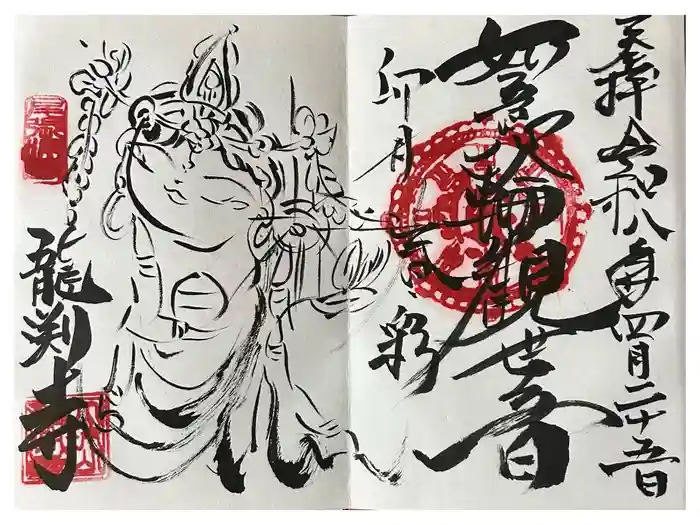 奉拝 令和八年四月二十五日
如意輪観世音
卯月 彩
龍渕寺